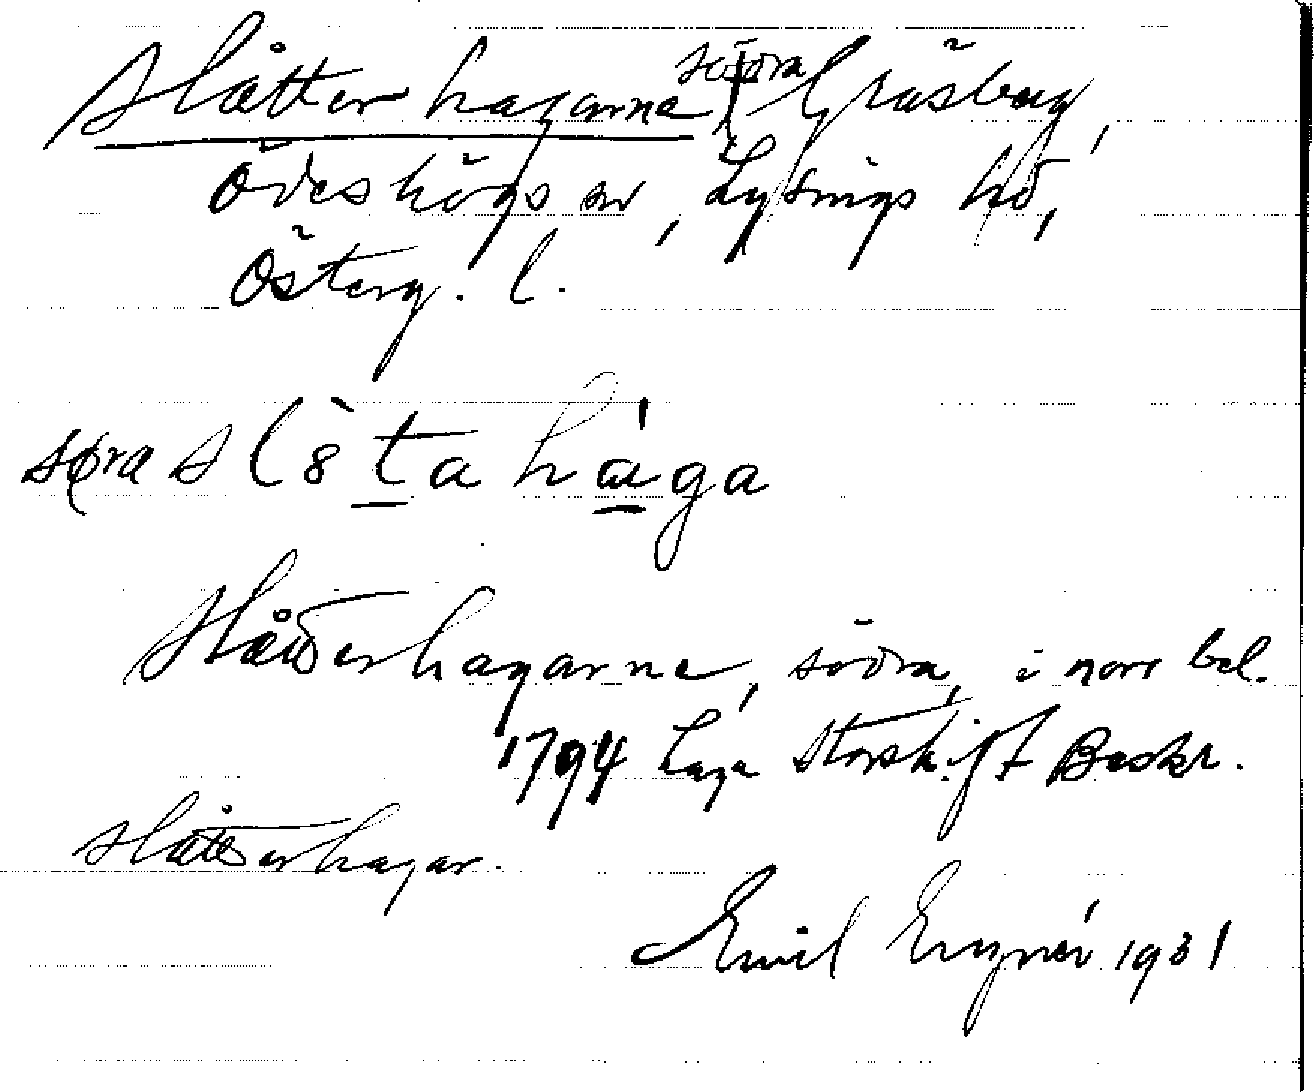 Slåtterhagarne, södra Gräsberg,
Ödeshögs sn, Lysings hd,
Österg. l.
søra slòta håga
Slåtterhagarne, södra, i norr bel.
1794 Laga Storskift Beskr.
Slåtterhagar.
Emil 1931